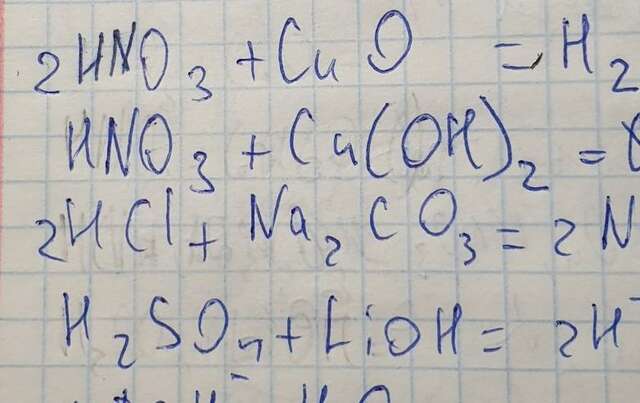 2HNO₃ + CuO = H₂
HNO₃ + Cu(OH)₂ =
2HCl + Na₂CO₃ = 2N
H₂SO₄ + LiOH = 2H